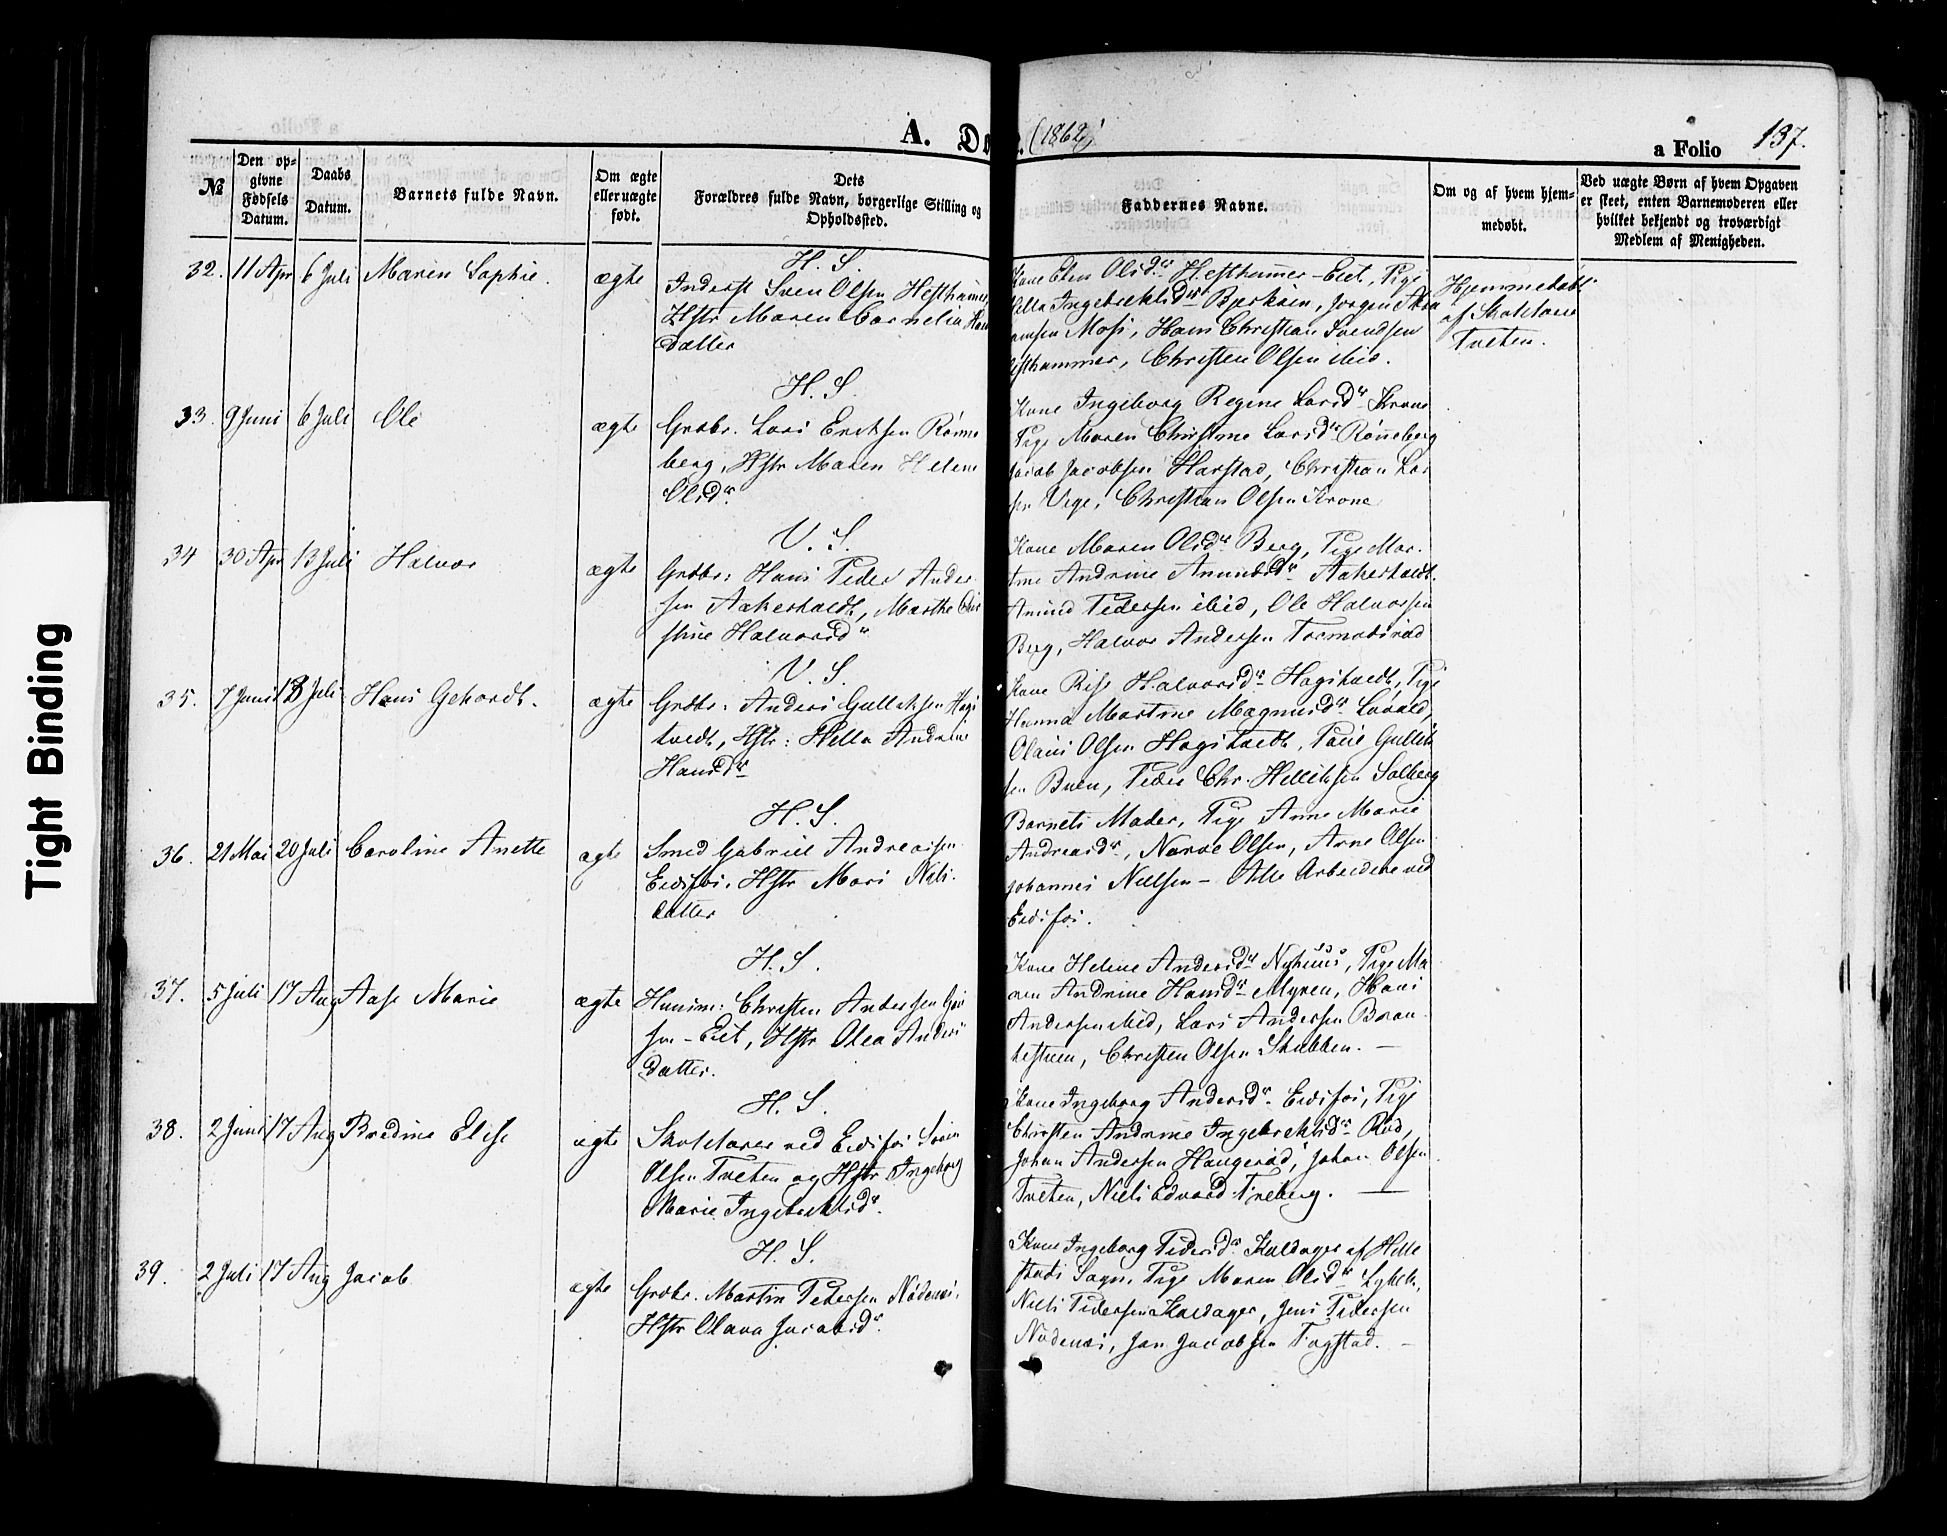 Tight Binding
A. Dø e. (1862)
a Folio 137.
№
Den op-
givne
Fødsels
Datum.
Daabs
Datum.
Barnets fulde Navn.
Om ægte
eller uægte
født.
Dets
Forældres fulde Navn, borgerlige Stilling og
Opholdssted.
Faddernes Navne.
Om og af hvem hjem-
medøbt.
Ved uægte Børn af hvem Opgaven
er skeet, enten Barnemoderen eller
hvilket bekjendt og troværdigt
Medlem af Menigheden.
H. S.
32. 11 Apr 6 Juli Maren Sophie. ægte
Inderst Sven Olsen Hesthammer
Hstr Maren Cornelia Hans
datter
Kone Elen Olsdr Hesthammer-Eiet, Pige
Ingebrektsdr Bjerkøen, Jørgen
Moss, Hans Christian Svendsen
Hesthammer, Christen Olsen ibid.
Hjemmedøbt
af Skolelærer
Tveten.
H. S.
33. 9 Juni 6 Juli Ole ægte
Grdbr. Lars Eriksen Rønne
berg, Hstr Maren Helene
Olsdr
Kone Ingeborg Regine Larsdr Krone
Pige Maren Christine Larsdr Rønneberg
Jacob Jacobsen Harstad, Christian Lar
sen Vege, Christian Olsen Krone
V. S.
34 30 Apr 13 Juli Halvor ægte
Grdbr: Hans Peder Ander
sen Aakerholdt, Marthe Chri
stine Halvorsdr
Kone Maren Olsdr Berg, Pige Mar
tine Andrine Amundsdr Aakerholdt
Amund Pedersen ibid, Ole Halvorsen
Berg, Halvor Andersen Tormodsrød
V. S.
35. 7 Juni 13 Juli Hans Gehardt. ægte
Grdbr: Anders Gulliksen Hogs
tvedt, Hstr: Hella Andrine
Hansdr
Kone Rise Halvorsdr Hogstvedt, Pige
Hanna Martine Magnusdr
Olaus Olsen Hogstvedt, Gullik
sen Buen, Peder Chr. Helliksen Solberg
H. S.
36. 21 Mai 20 Juli Caroline Anette ægte
Smed Gabriel Andreassen
Eidsfos, Hstr Mari Niels
datter
Barnets Moder, Pige Anne Marie
Andreasdr, Narve Olsen, Arne Olsen
Johannes Nielsen - Alle Arbeidere ved
Eidsfos.
H. S.
37. 5 Juli 17 Aug Aase Marie ægte
Husm: Christen Andersen
-Eiet, Hstr Olea Anders
datter.
Kone Helene Andersdr Nyhuus, Pige Ma
ren Andrine Hansdr Myren, Hans
Andersen ibid, Lars Andersen Bran
testuen, Christen Olsen Stubben. —
H. S.
38. 2 Juni 17 Aug Bredine Elise ægte
Skolelærer ved Eidsfos Svein
Olsen Tveten og Hstr Ingeborg
Marie Ingebrektsd.
Kone Ingeborg Andersdr Eidsfos, Pige
Christen Andrine Ingebrektsdr Rød,
Johan Andersen Haugerød, Johan Olsen
Tveten, Niels Edvard Treberg. —
H. S.
39. 2 Juli 17 Aug Jacob ægte
Grdbr. Martin Pedersen Nødenes,
Hstr Olava Jacobsdr.
Kone Ingeborg Pedersdr Kaldager af Hille
stads Sogn, Pige Maren Olsdr
Niels Pedersen Kaldager, Jens Pedersen
Nødenæs, Jan Jacobsen Fogstad. —